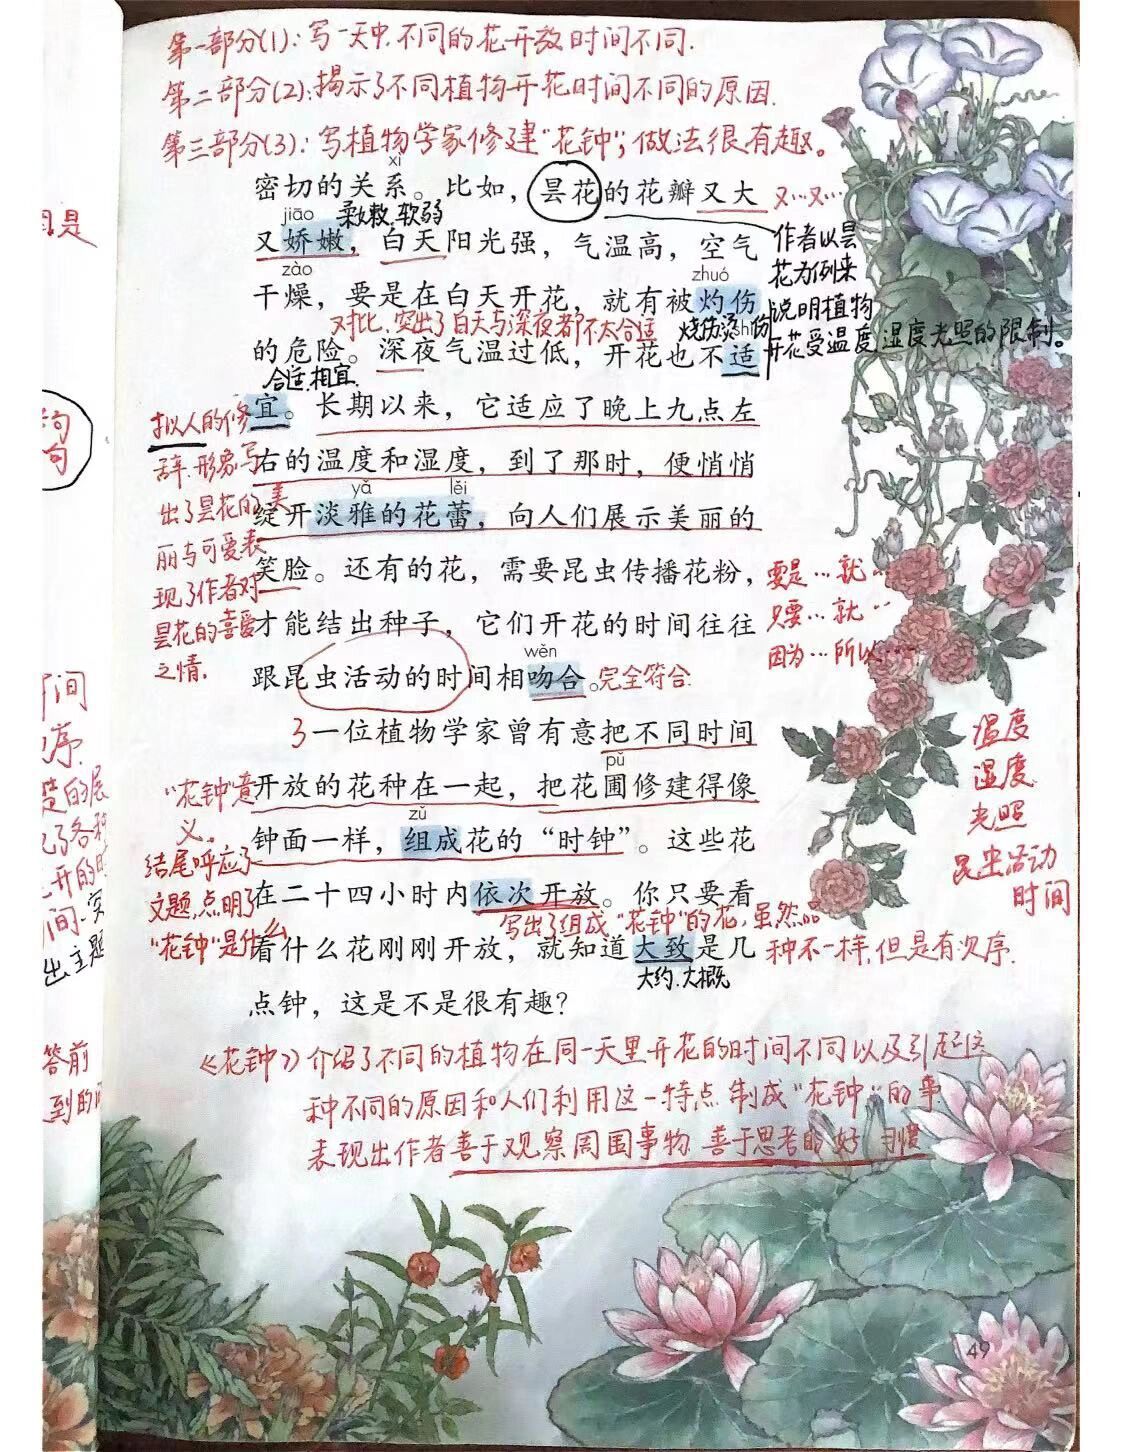 第一部分(1)：写一天中,不同的花开放时间不同.
第二部分(2)：揭示了不同植物开花时间不同的原因.
第三部分(3)：写植物学家修建"花钟"，做法很有趣。
xì
密切的关系。比如，昙花的花瓣又大
又…又…
jiāo
柔嫩.软弱
又娇嫩，白天阳光强，气温高，空气
作者以昙
花为例来
说明植物
开花受温度,湿度,光照的限制。
zào
zhuó
干燥，要是在白天开花，就有被灼伤
对比.突出了白天与深夜都不太合适
烧伤,烫伤
的危险。深夜气温过低，开花也不适
合适.相宜.
宜。长期以来，它适应了晚上九点左
拟人的修
辞.形象写
出了昙花的美
丽与可爱表
现了作者对
昙花的喜爱
之情.
右的温度和湿度，到了那时，便悄悄
yǎ
lěi
绽开淡雅的花蕾，向人们展示美丽的
笑脸。还有的花，需要昆虫传播花粉，
要是…就…
只要…就…
因为…所以……
才能结出种子，它们开花的时间往往
wěn
跟昆虫活动的时间相吻合。
完全符合.
温度
湿度
光照
昆虫活动
时间
3一位植物学家曾有意把不同时间
pǔ
开放的花种在一起，把花圃修建得像
"花钟"意
义。
zǔ
钟面一样，组成花的“时钟”。这些花
结尾呼应了
文题,点明了
"花钟"是什么
在二十四小时内依次开放。你只要看
写出了组成"花钟"的花,虽然品
种不一样,但是有次序.
看什么花刚刚开放，就知道大致是几
大约.大概
点钟，这是不是很有趣？
《花钟》介绍了不同的植物在同一天里开花的时间不同以及引起这
种不同的原因和人们利用这一特点制成"花钟"的事
表现出作者善于观察周围事物.善于思考的好习惯
49
是
句
句
间
序.
的展
了各种
开的时
间.突
出主题
答前
到的